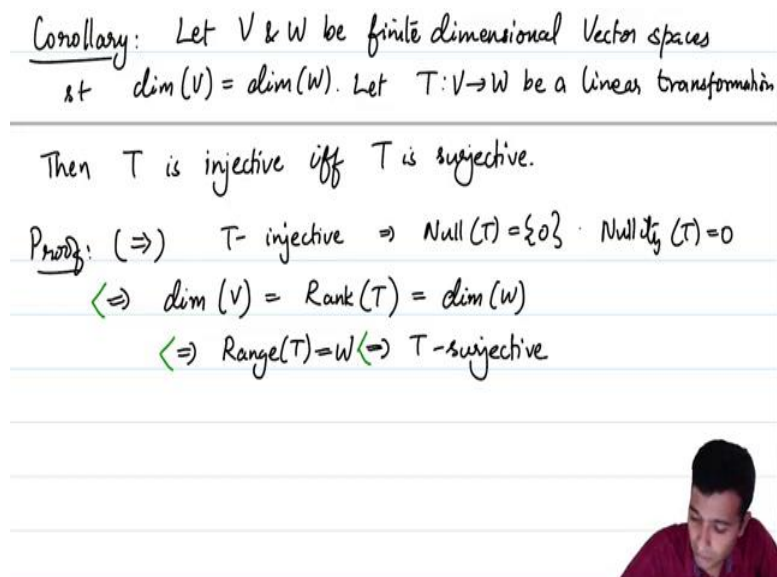 Corollary: Let V & W be finite dimensional Vector spaces
st dim(V) = dim(W). Let T: V→W be a linear transformation
Then T is injective iff T is surjective.
Proof: (⇒) T- injective ⇒ Null(T) = {0} · Nullity (T) = 0
⇔ dim (V) = Rank(T) = dim(W)
⇔ Range(T) = W ⇔ T-surjective